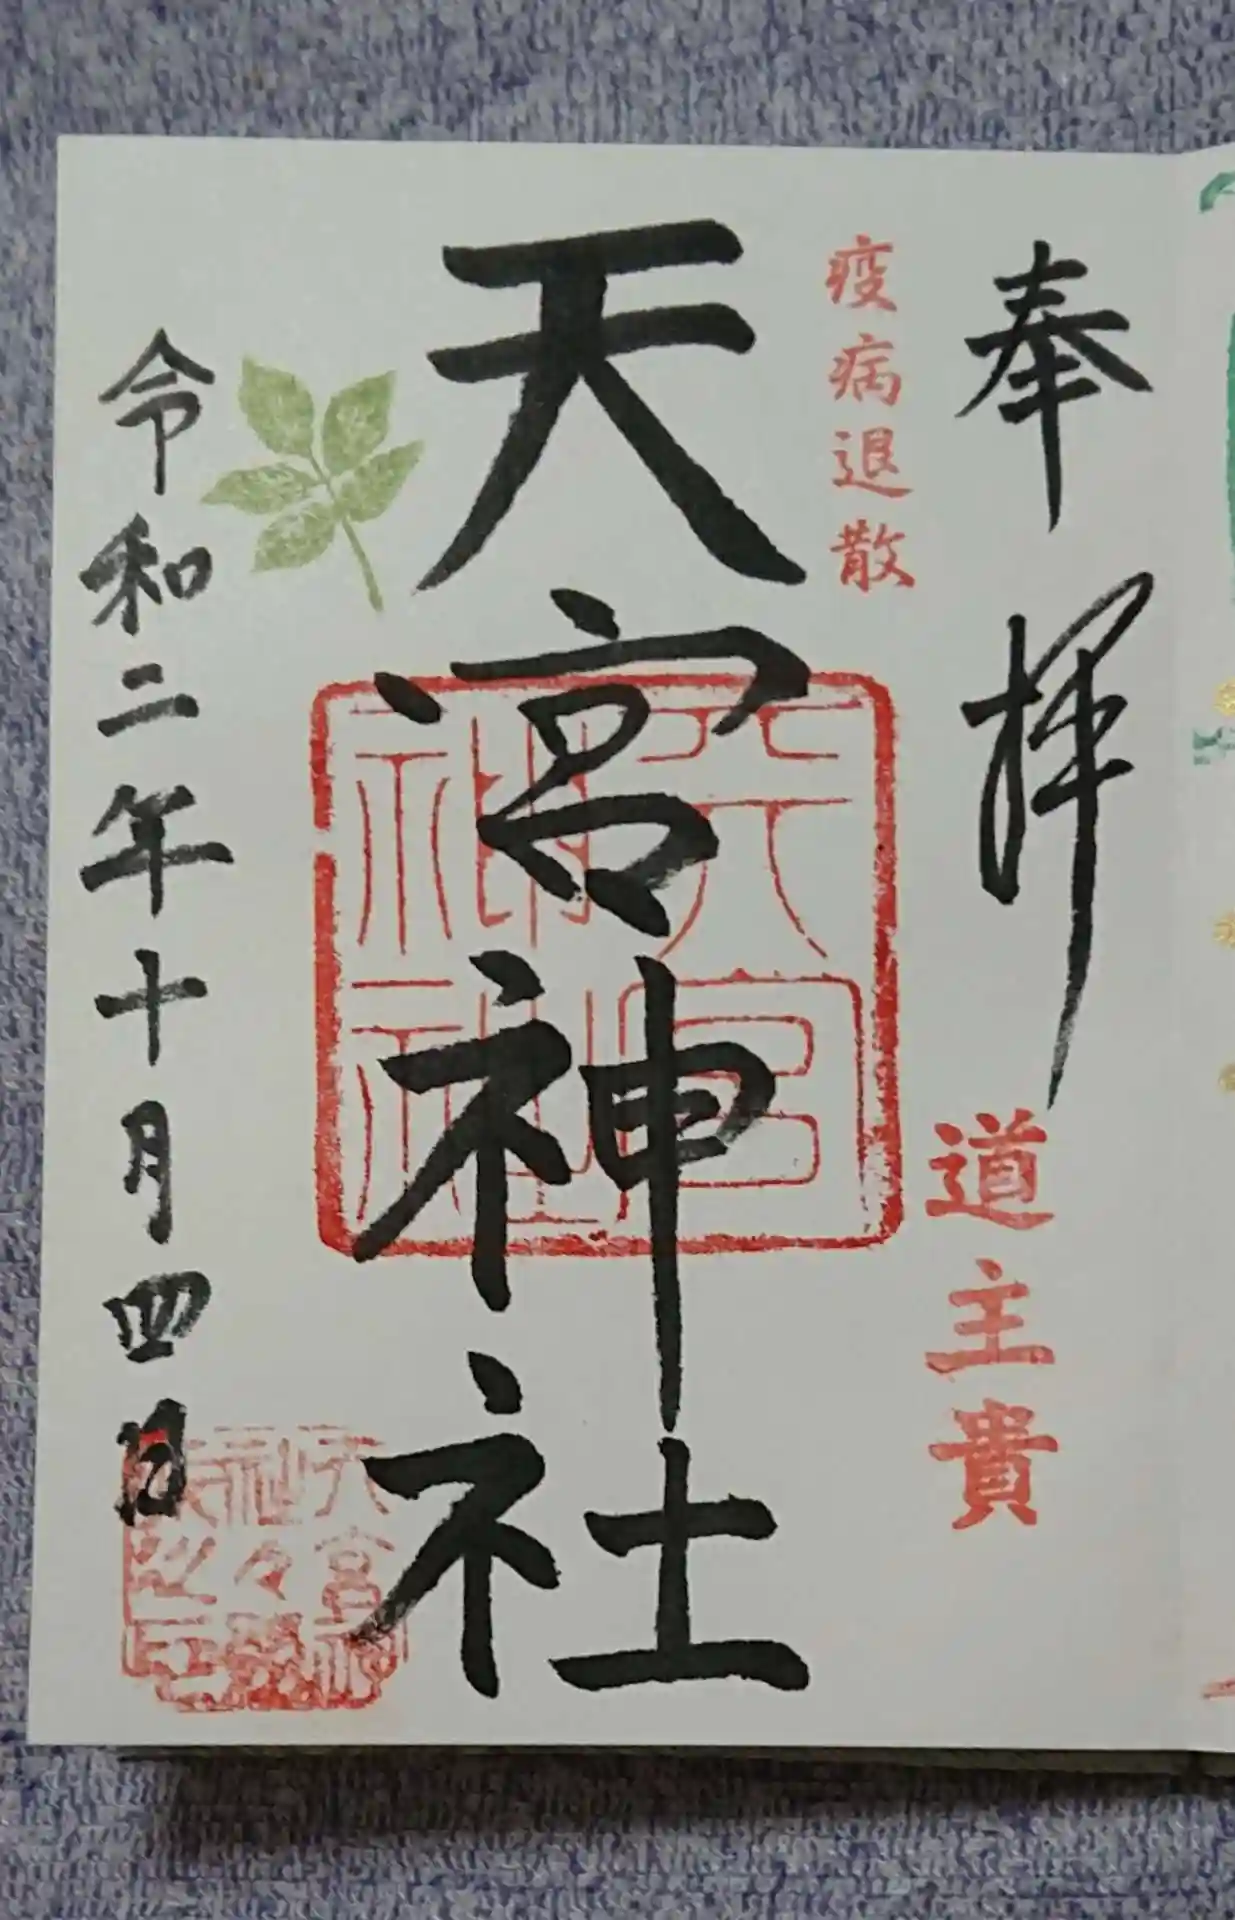 奉拝
道主貴
疫病退散
天宮神社
天宮
神社
令和二年十月四日
天宮神
社々務